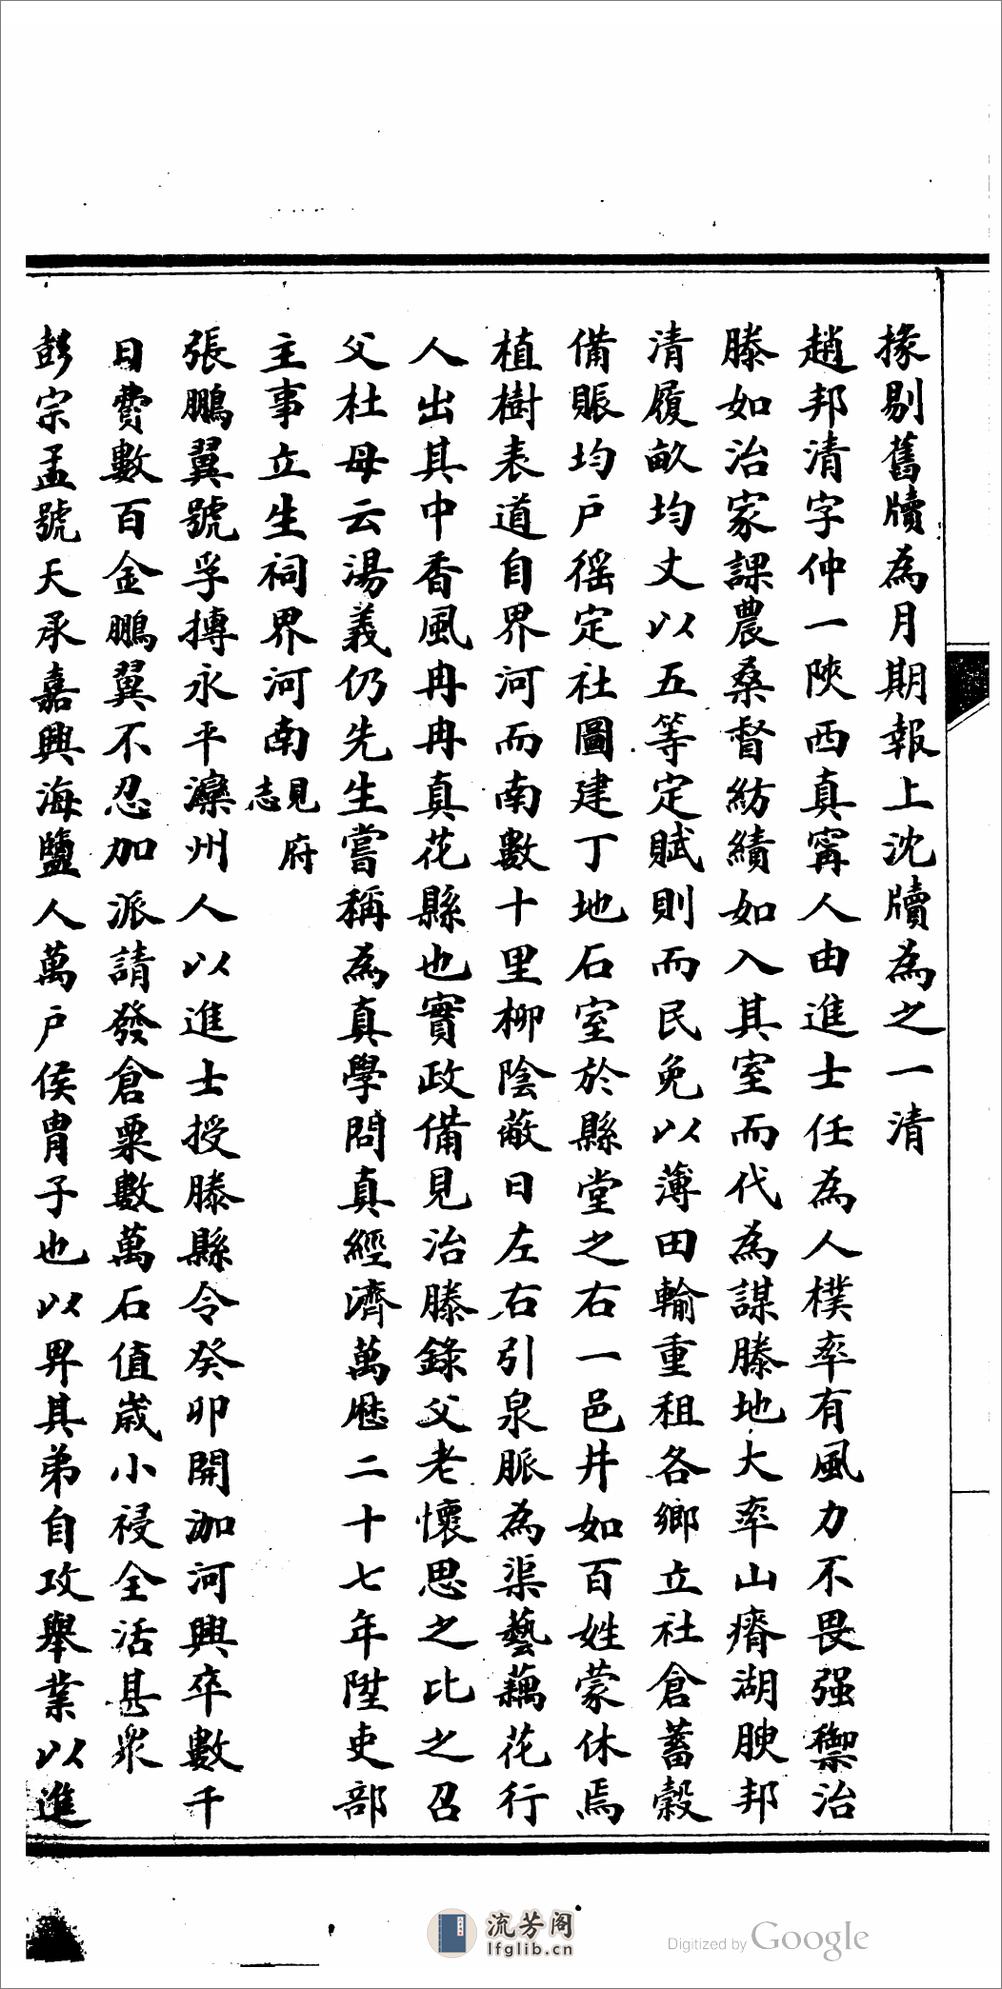 掾剔舊牘為月期報上沈牘為之一清
趙邦清字仲一陝西真寧人由進士任為人樸率有風力不畏强禦治
滕如治家課農桑督紡績如入其室而代為謀滕地大率山瘠湖腴邦
清履畝均丈以五等定賦則而民免以薄田輸重租各鄉立社倉蓄穀
備賑均戶徭定社圖建丁地石室於縣堂之右一邑井如百姓蒙休焉
植樹表道自界河而南數十里柳陰蔽日左右引泉脈為渠藝藕花行
人出其中香風冉冉真花縣也實政備見治滕錄父老懷思之比之召
父杜母云湯義仍先生嘗稱為真學問真經濟萬厯二十七年陞吏部
主事立生祠界河南見府志
張鵬翼號孚摶永平灤州人以進士授滕縣令癸卯開泇河興卒數千
日費數百金鵬翼不忍加派請發倉粟數萬石值歲小祲全活甚衆
彭宗孟號天承嘉興海鹽人萬戶侯胄子也以畀其弟自攻舉業以進
流芳阁
lfglib.cn
Digitized by Google